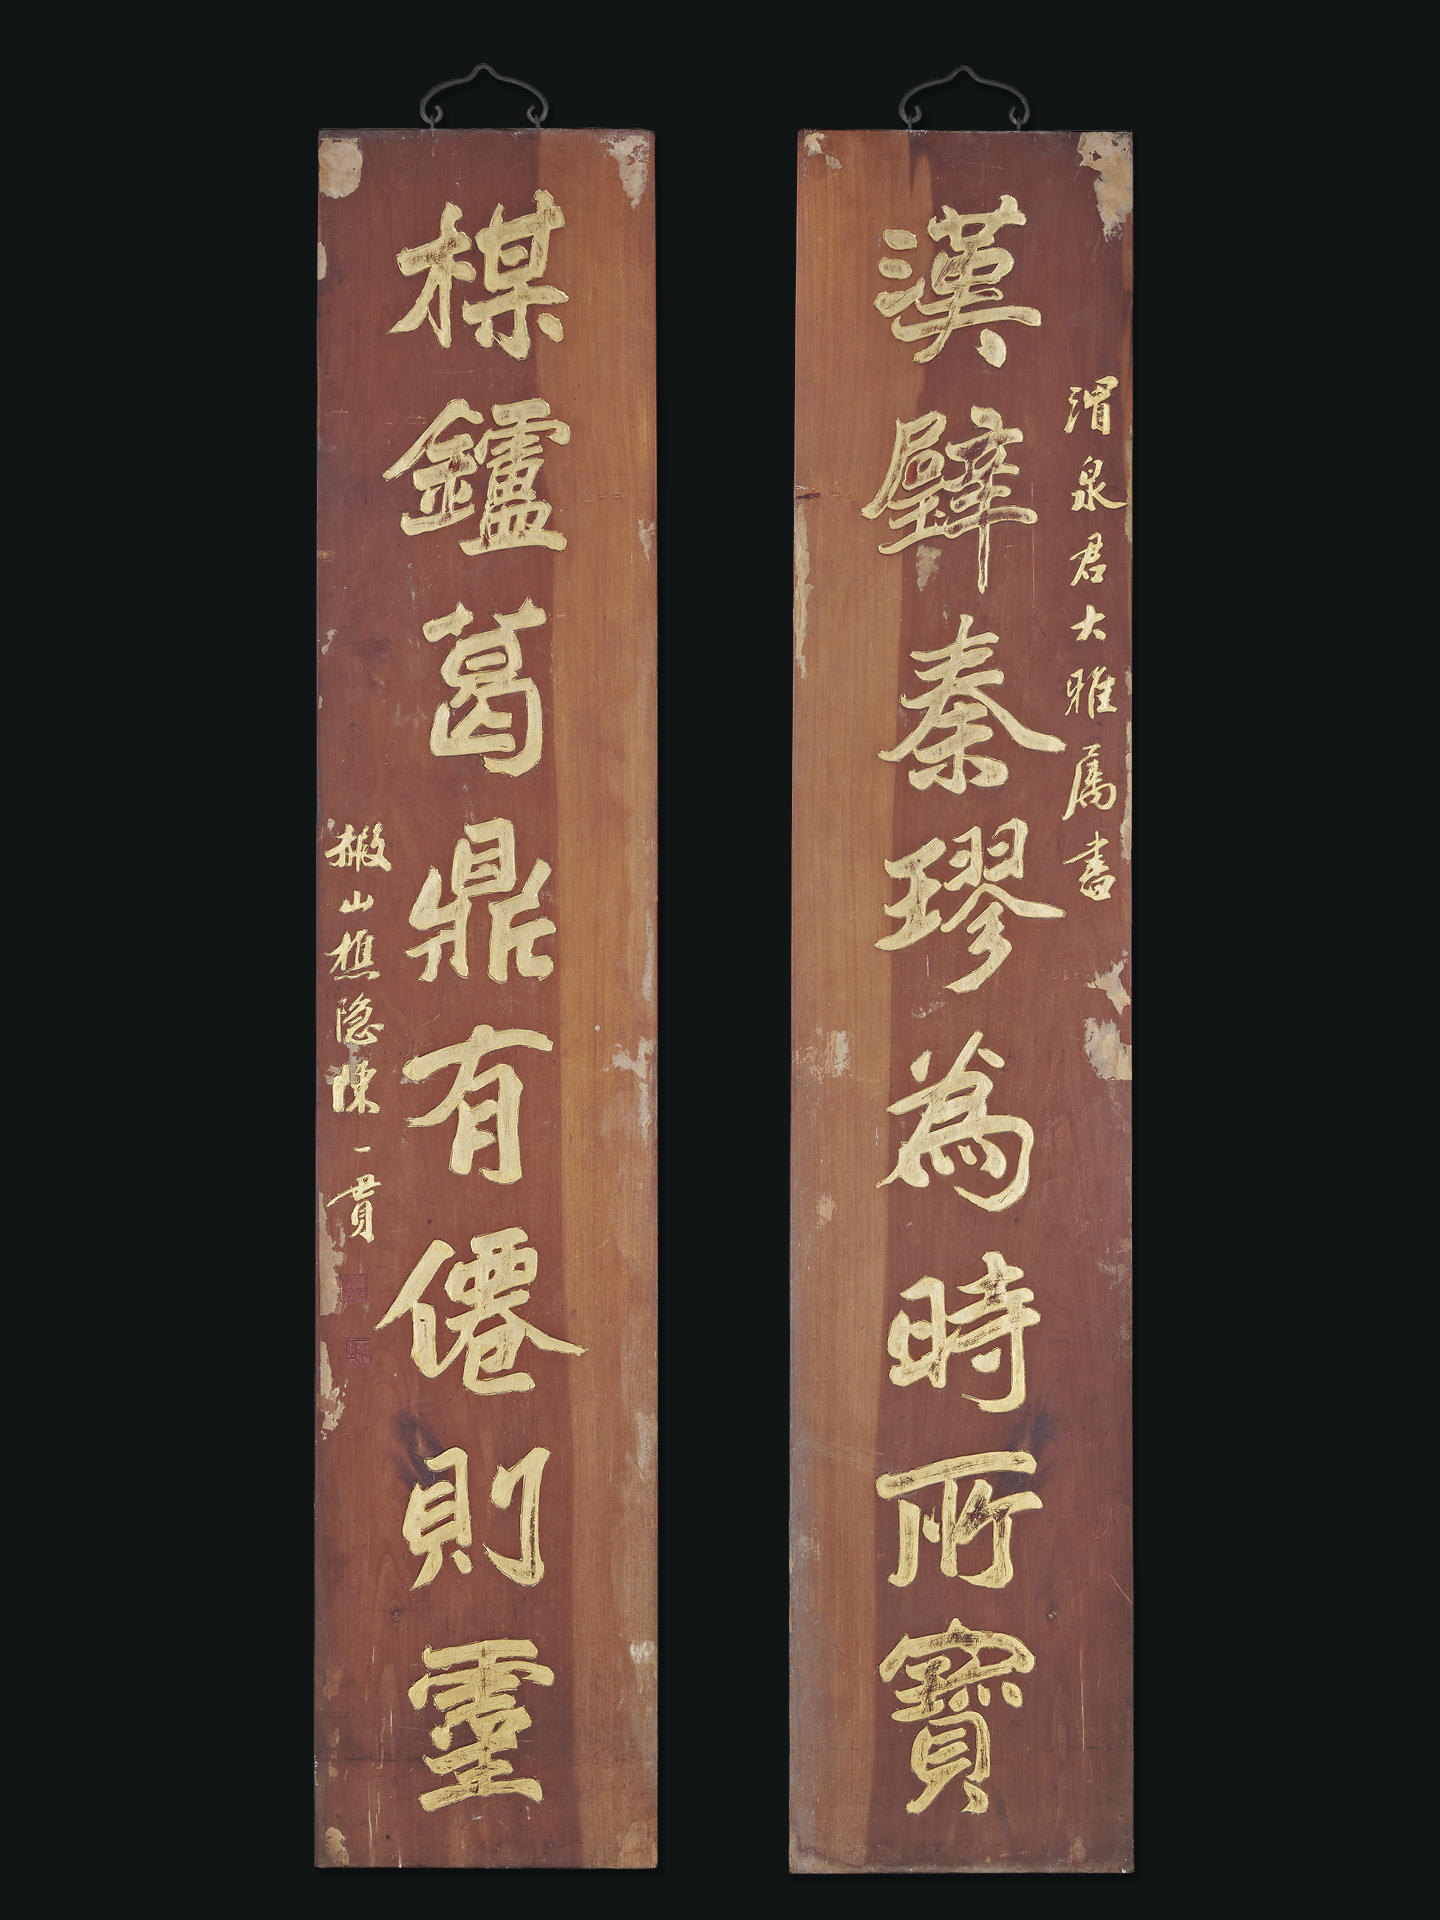 渭泉君大雅属書
漢璧秦璆為時所寶
楳鑪葛鼎有僊則靈
山樵隐陳一貫